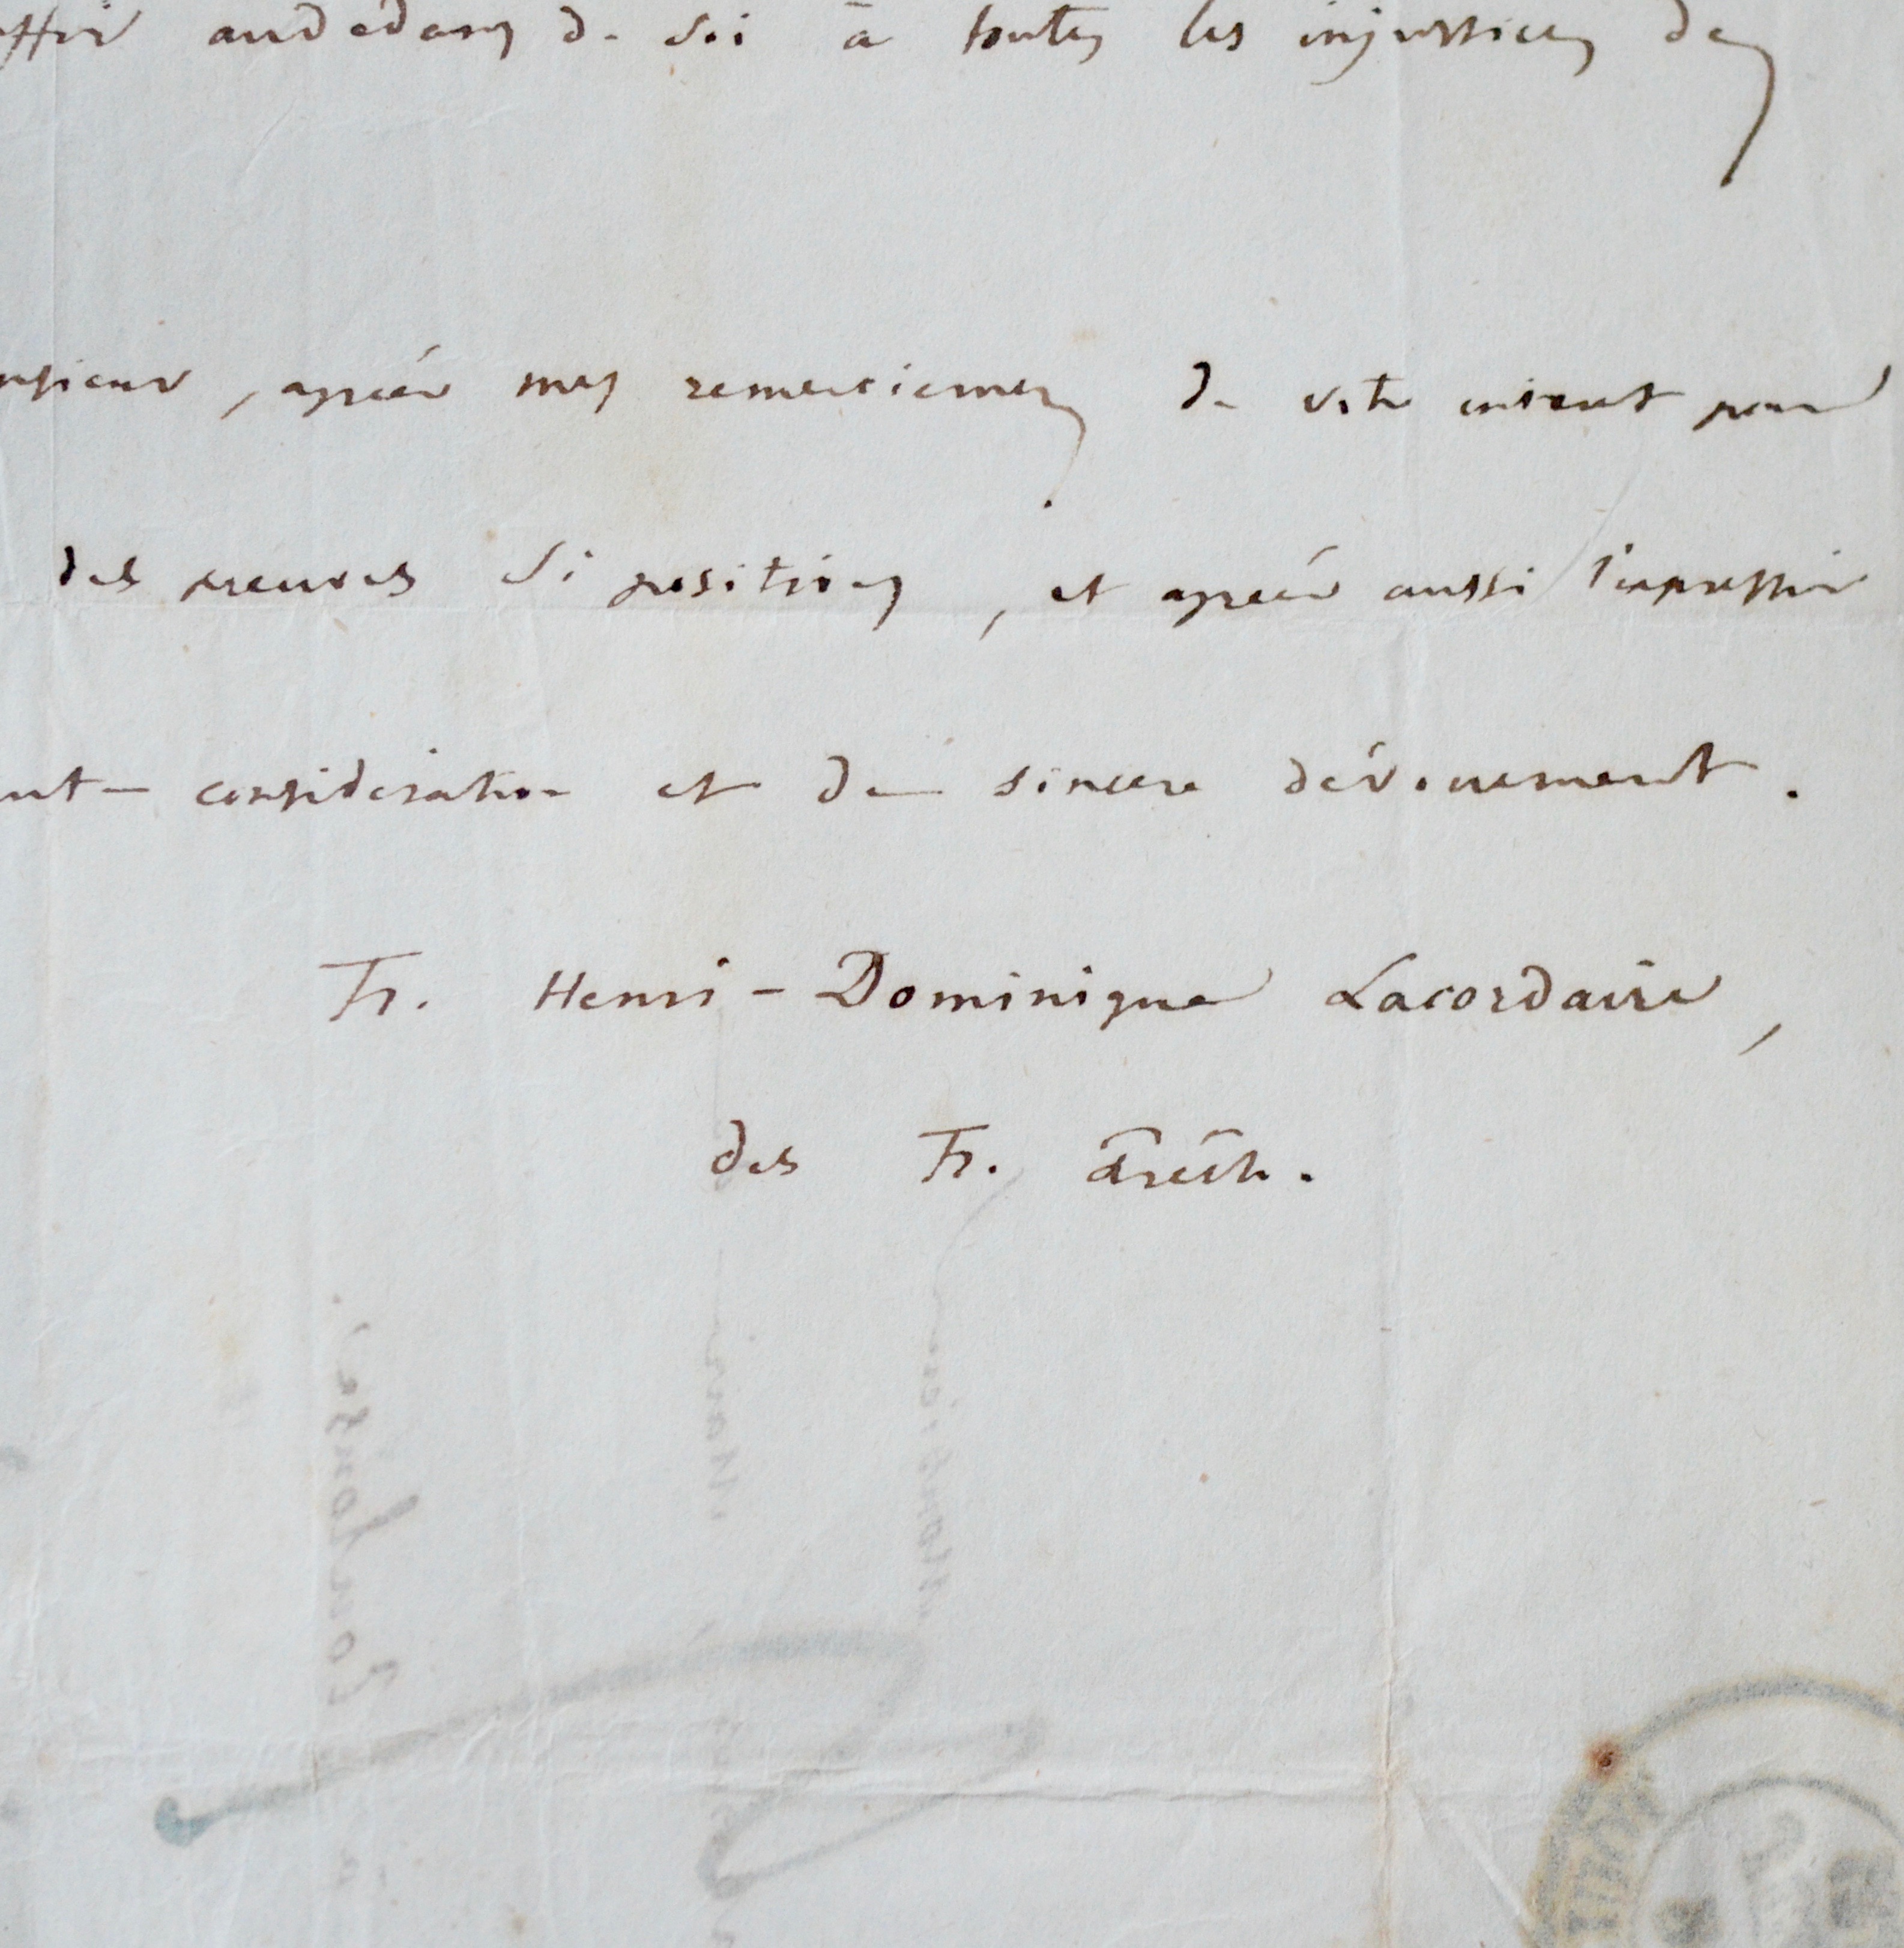 au dedans de soi à toutes les injustices des
, agréer mes remerciemens de votre intérêt pour
des preuves si positives, et agréer aussi l'expression
considération et de sincere dévouement.
Fr. Henri-Dominique Lacordaire,
des Fr. Prêch.
Monsieur
Monsieur
Toulouse.